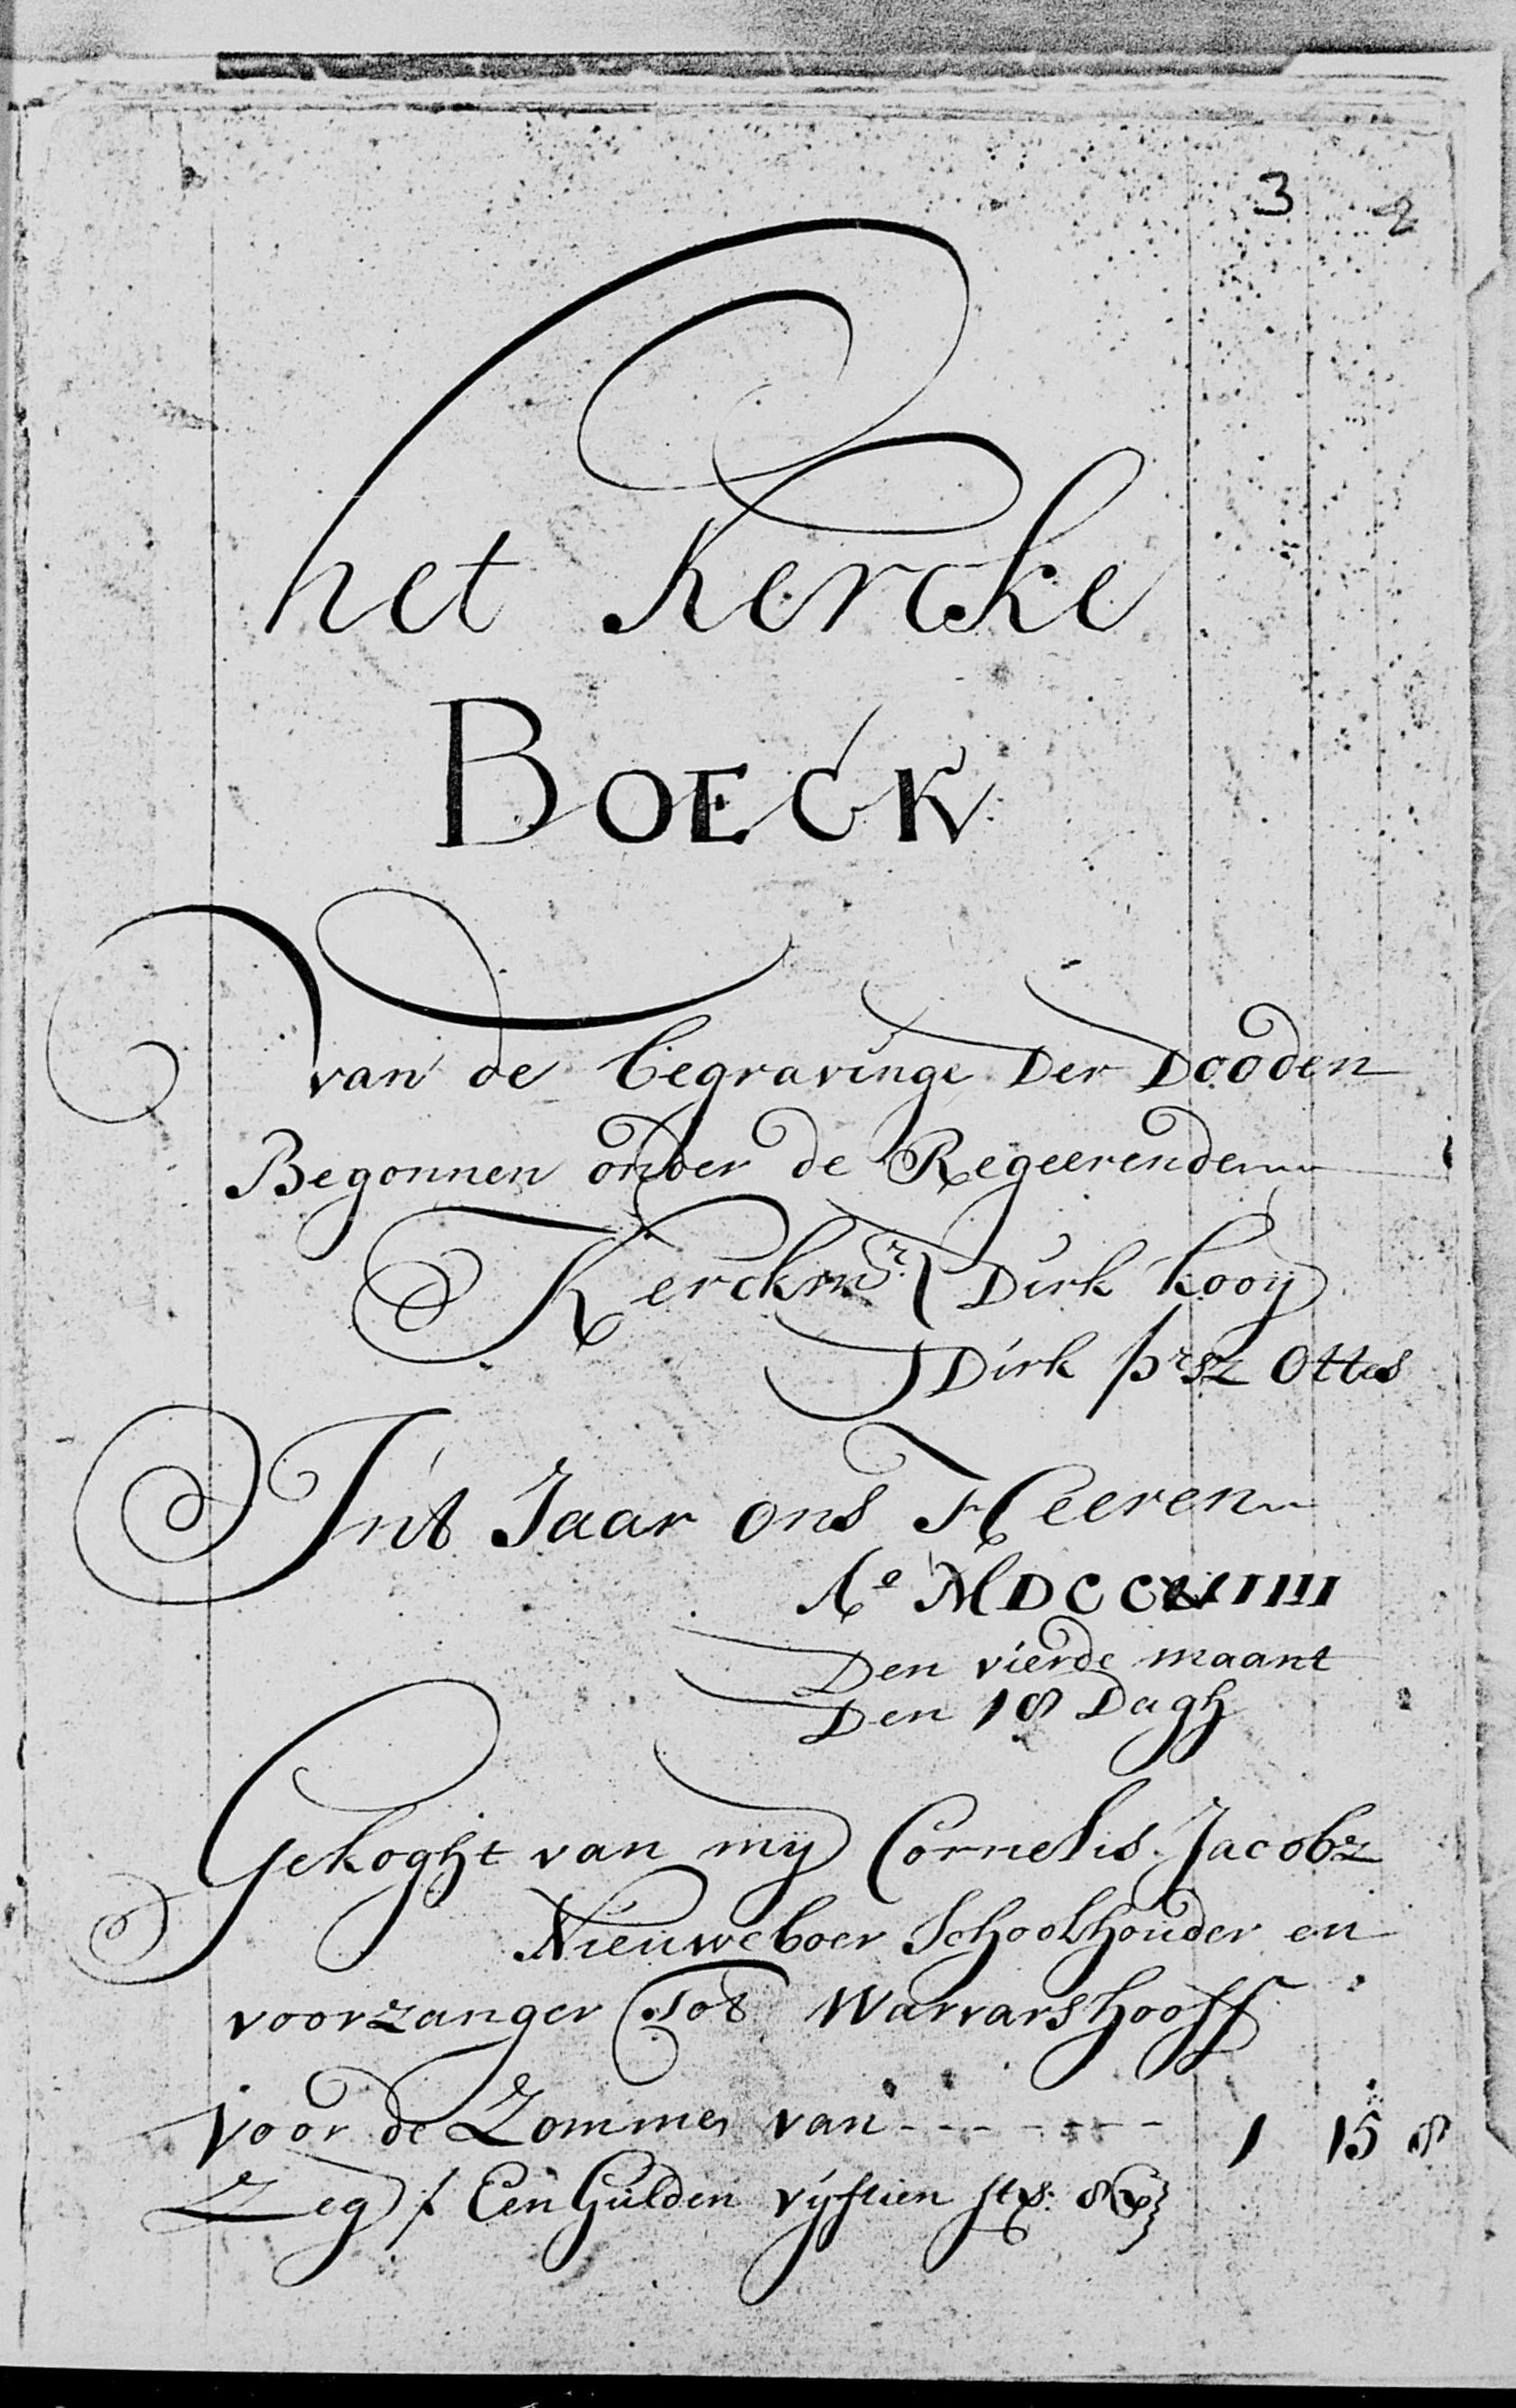 3 2
het Kercke
BOECK
van de begravinge Der Dooden
Begonnen onder de Regeerende
Kerckmr. Dirk Kooy
Dirk prsz Ottes
Int Jaar ons Heeren
Ao MDCC IIII
Den vierde maant
Den 18 Dagh
Gekoght van mij Cornelis Jacobz
Nieuweboer Schoolhouder en
voorzanger Tot Warvarshooff
voor de Zomme van - - - - - - - 1 15 8
Zeg f Een Gulden vijftien stv: 8